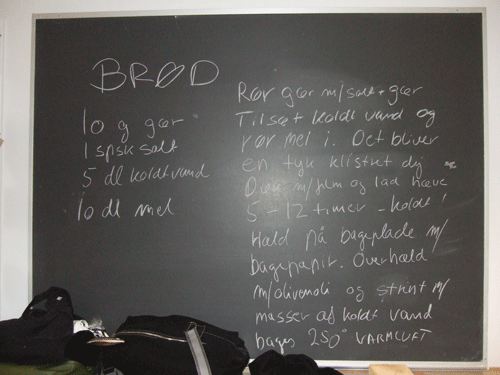 BRØD
10 g gær
1 spsk salt
5 dl koldt vand
10 dl mel
Rør gær m/salt + gær
Tilsæt koldt vand og
rør mel i. Det bliver
en tyk klistret dej
Dæk m/film og lad hæve
5-12 timer - koldt!
Hæld på bageplade m/
bagepapir. Overhæld
m/olivenoli og strint m/
masser af koldt vand
bages 250° VARMLUFT